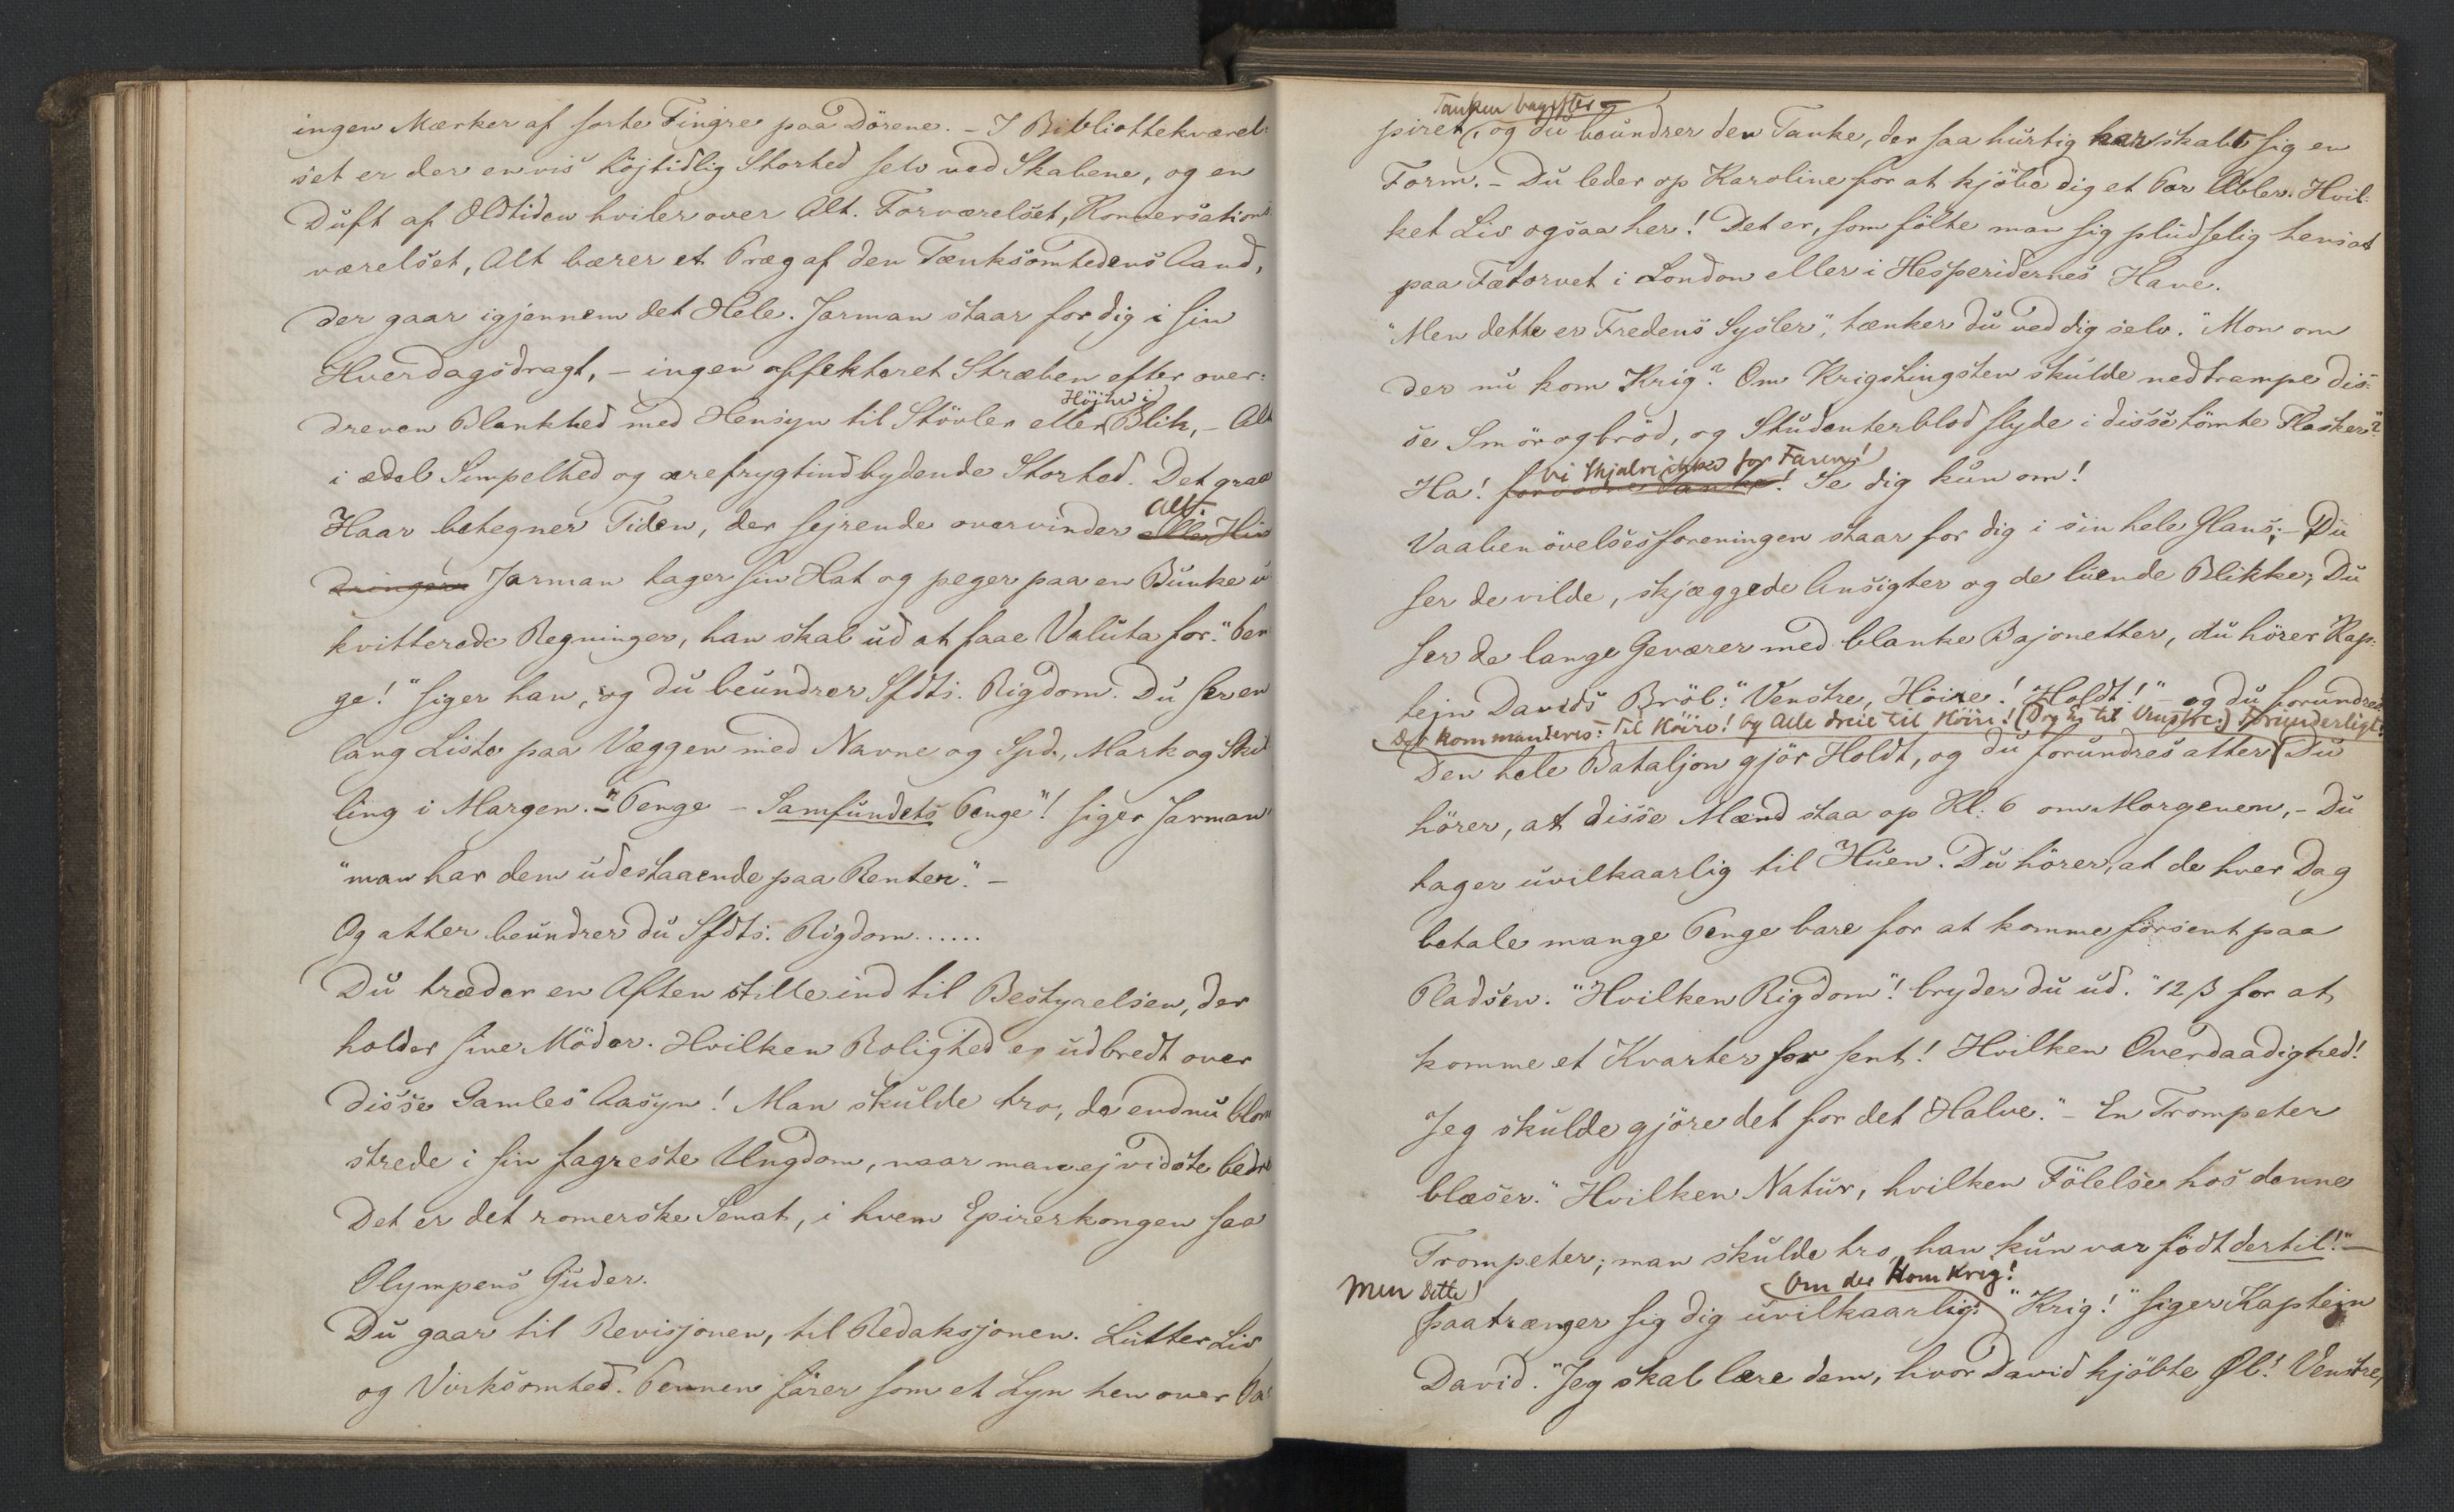 ingen Mærker af sorte Fingre paa Dörene. – I Bibliothekværel-
set er der en vis höjtidlig Storhed selv ved Skabene, og en
Duft af Oldtiden hviler over Alt. Forværelset, Konversations
værelset, Alt bærer et Præg af den Tænksomhedens Aand,
der gaar igjennem det Hele. Jarman staar for dig i sin
Hverdagsdragt, – ingen affekteret Stræben efter over-
Höjhed i
dreven Blankhed med Hensyn til Stövler eller Blik, – Alt
i ædel Simpelhed og ærefrygtindbydende Storhed. Det graa
Alt.
Haar betegner Tiden, der sejrende overvinder alle Hin
dringer Jarman tager sin Hat og peger paa en Bunke u
kvitterede Regninger, han skal ud at faae Valuta for. "Pen
ge!" siger han, og du beundrer Sfdts. Rigdom. Du ser en
lang Liste paa Væggen med Navne og Spd., Mark og Skil
ling i Margen. – "Penge – Samfundets Penge"! siger Jarman
"man har dem udestaaende paa Renter." –
Og atter beundrer du Sfdts. Rigdom......
Du træder en Aften stille ind til Bestyrelsen, der
holder sine Möder. Hvilken Rolighed er udbredt over
disse Gamles Aasyn! Man skulde tro, de endnu blom
strede i sin fagreste Ungdom, naar man ej vidste bedre
Det er det romerske Senat, i hvem Epirerkongen saa
Olympens Guder.
Du gaar til Revisjonen, til Redaksjonen. Lutter Liv
og Virksomhed. Pennen farer som et Lyn hen over Pa
Tanken bagefter –
piret, og du beundrer den Tanke, der saa hurtig har skabt sig en
Form. – Du leder op Karoline for at kjöbe dig et Par Æbler. Hvil-
ket Liv ogsaa her! Det er, som fölte man sig pludselig hensat
paa Fætorvet i London eller i Hesperidernes Have.
"Men dette er Fredens Sysler", tænker du ved dig selv. "Mon om
der nu kom Krig? Om Krigshingsten skulde nedtrampe dis-
se Smörogbröd, og Studenterblod flyde i disse tömte Flasker?
vi skjælve ikke for Faren!
Ha! forvovne Tanke! Se dig kun om!
Vaabenövelsesforeningen staar for dig i sin hele Glans; – Du
ser de vilde, skjæggede Ansigter og de luende Blikke; Du
ser de lange Geværer med blanke Bajonetter, du hörer Kap-
tejn Davids Bröl: "Venstre, Höire! Holdt!" – og du forundres
Det kommanderes: Til Höire! og Alle dreie til Höire! (Dog Ej til Venstre.) Forunderligt!
Den hele Bataljon gjör Holdt, og du forundres atter Du
hörer, at disse Mænd staa op Kl. 6 om Morgenen, – Du
tager uvilkaarlig til Huen. Du hörer, at de hver Dag
betale mange Penge bare for at komme forsent paa
Pladsen. "Hvilken Rigdom"! bryder du ud. "12 ß for at
komme et Kvarter for sent! Hvilken Overdaadighed!
Jeg skulde gjöre det for det Halve." – En Trompeter
blæser. "Hvilken Natur, hvilken Fölelse hos denne
Trompeter; man skulde tro, han kun var födt dertil!" –
Men dette! Om der kom Krig!
paatrænger sig dig uvilkaarlig. "Krig!" siger Kaptejn
David. "Jeg skal lære dem, hvor David kjöbte Øl! Venstre,